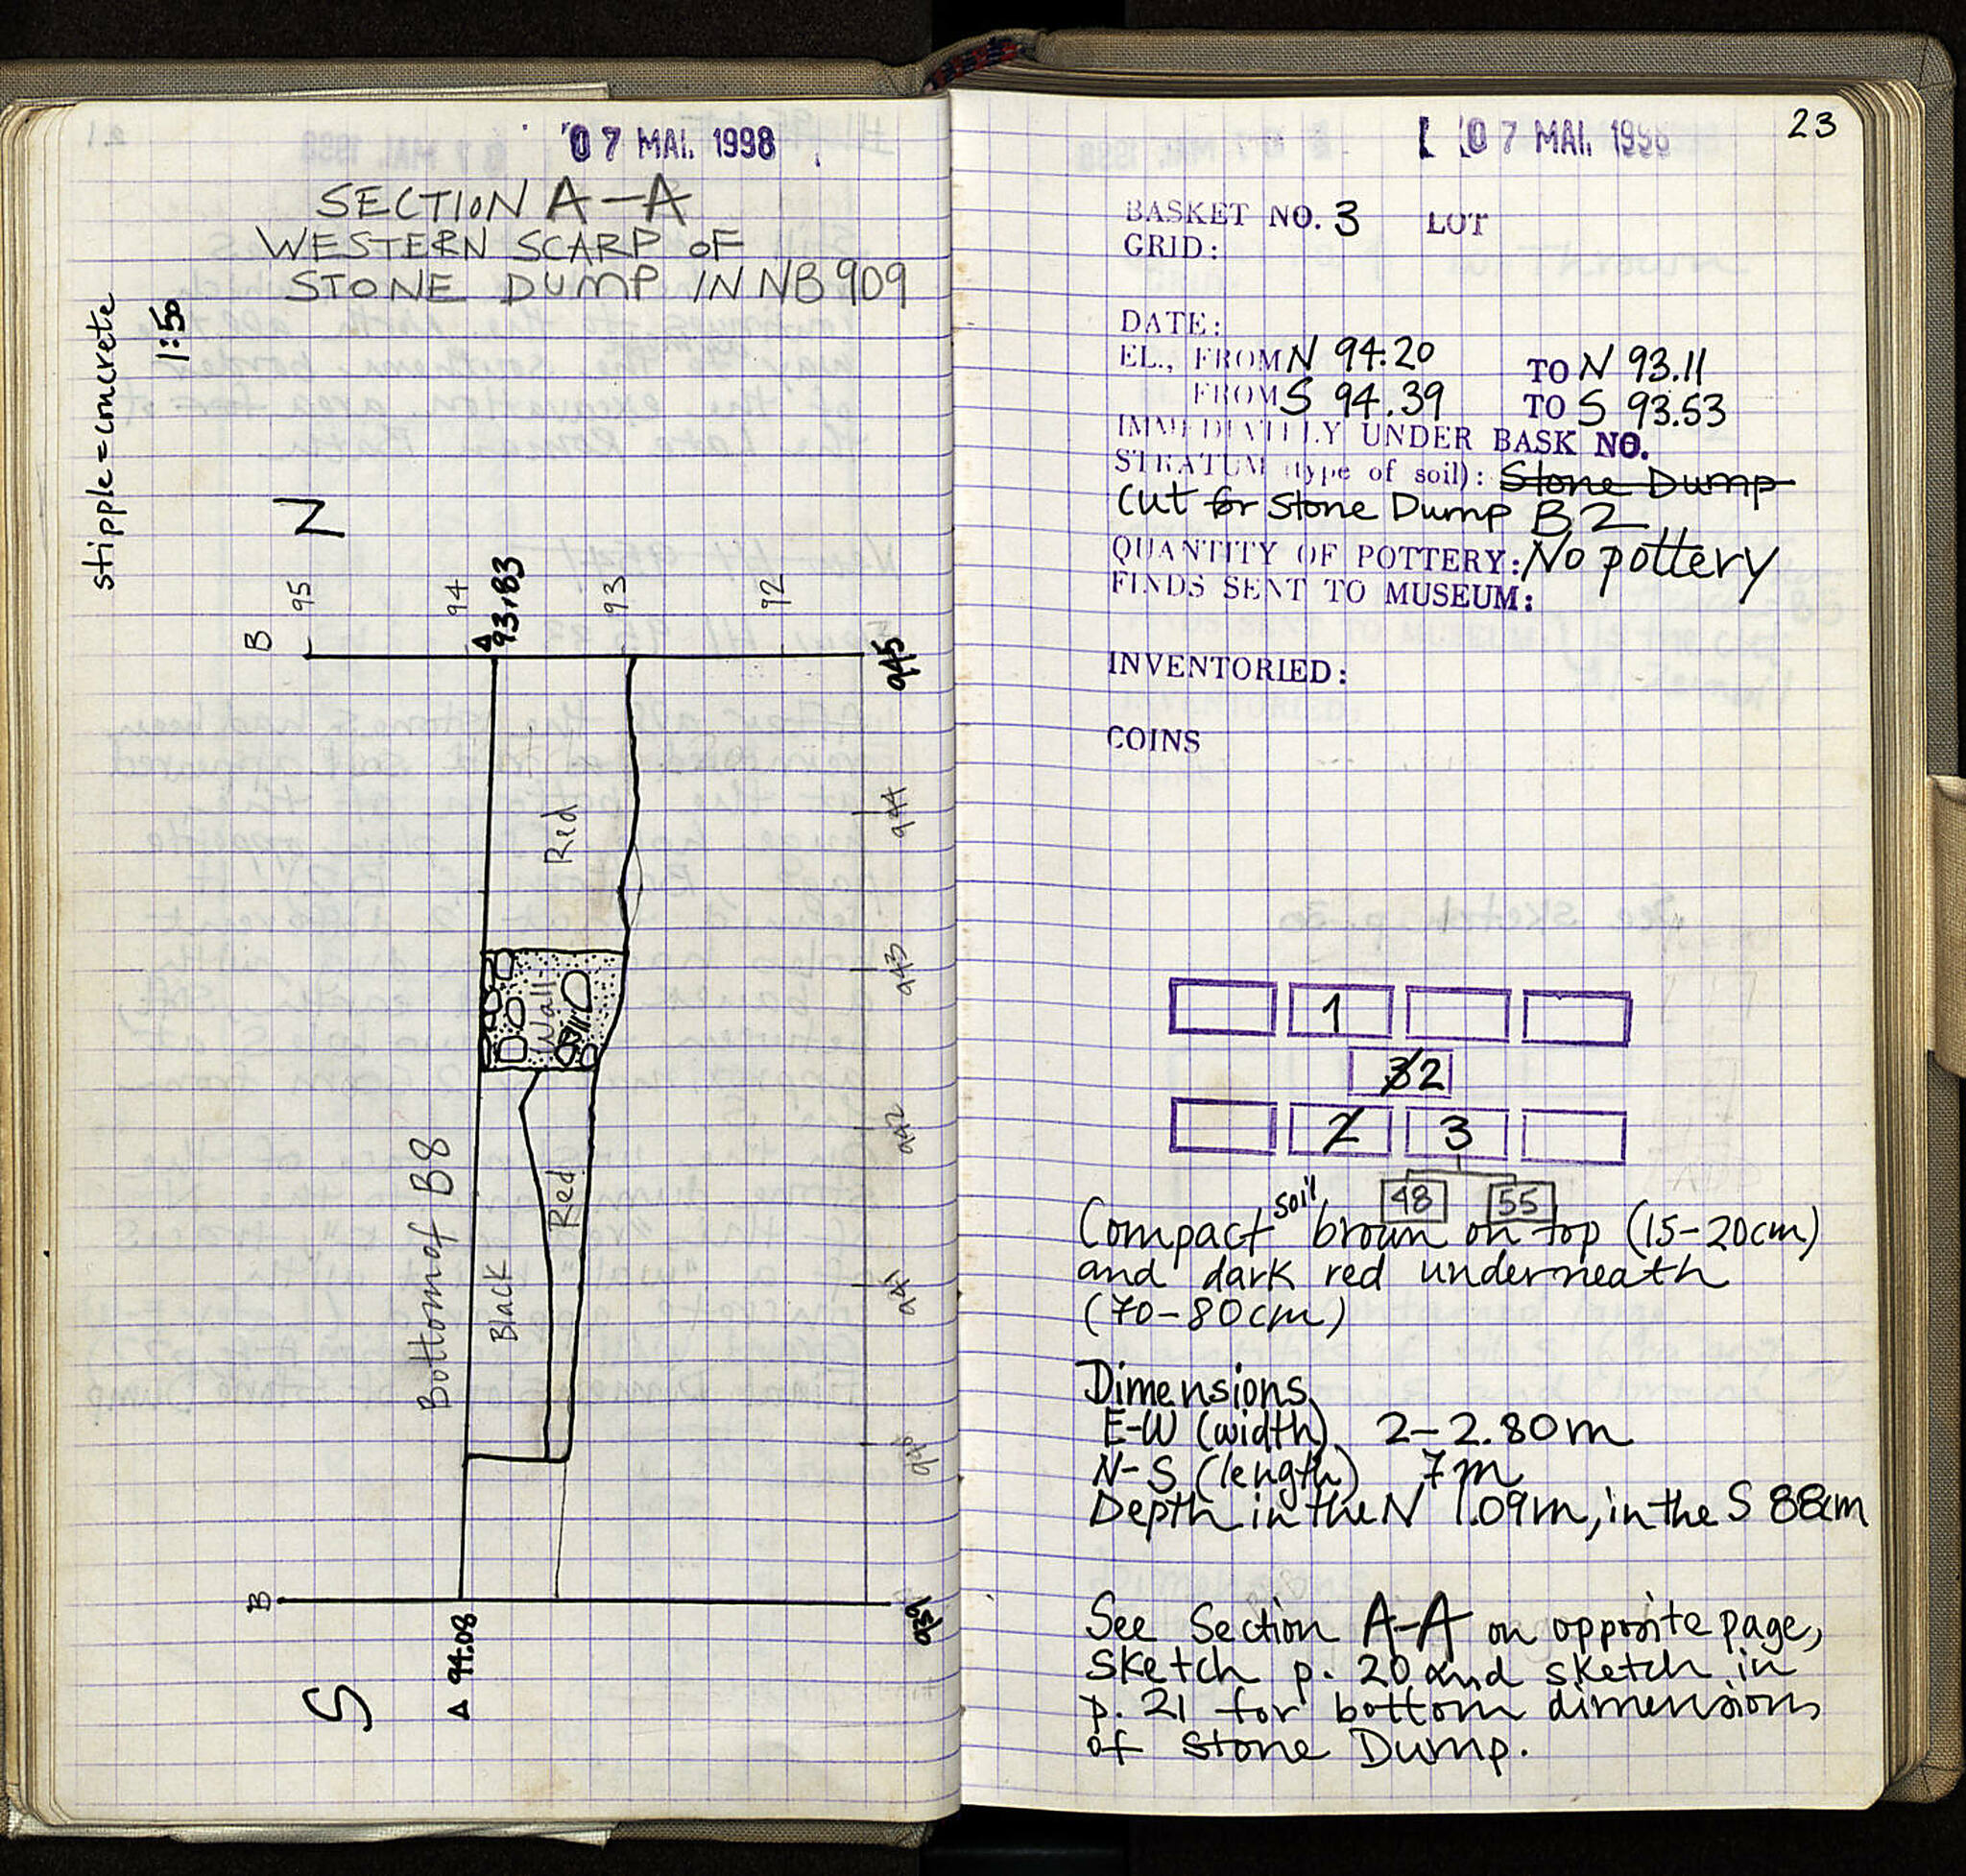 07 MAI. 1998
SECTION A-A
WESTERN SCARP OF
STONE DUMP IN NB 909
stipple = concrete
1:50
N
B
95
94
93.83
93
92
945
Red
944
943
Wall
942
Bottom of B8
Red
Black
941
940
B
94.08
939
S
07 MAI. 1998
23
BASKET NO. 3 LOT
GRID:
DATE:
EL., FROM N 94.20 TO N 93.11
FROM S 94.39 TO S 93.53
IMMEDIATELY UNDER BASK NO.
STRATUM (type of soil): Stone Dump
Cut for Stone Dump B2
QUANTITY OF POTTERY: No pottery
FINDS SENT TO MUSEUM:
INVENTORIED:
COINS
1
32
2 3
48 55
Compact soil brown on top (15-20cm)
and dark red underneath
(70-80cm)
Dimensions
E-W (width) 2-2.80m
N-S (length) 7m
Depth in the N 1.09m, in the S 88cm
See Section A-A on opposite page,
sketch p. 20 and sketch in
p. 21 for bottom dimensions
of Stone Dump.